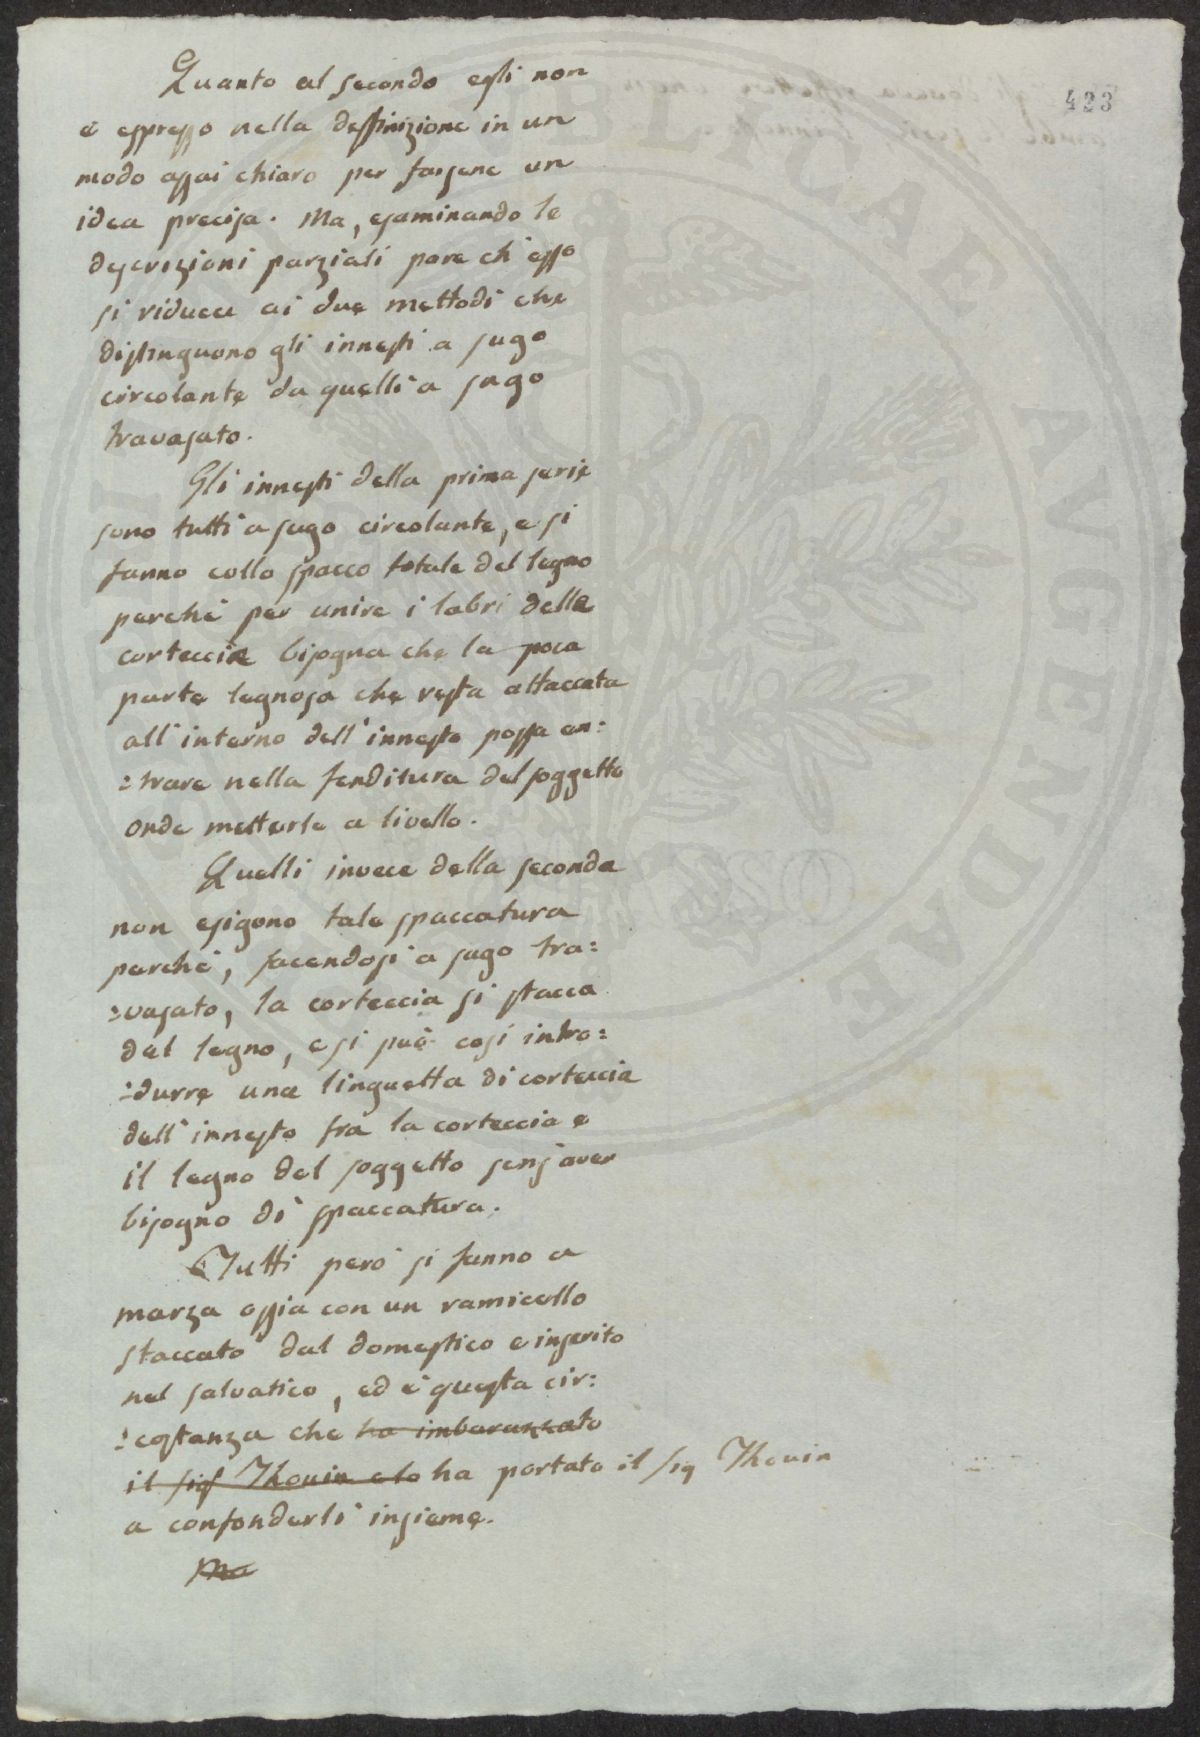 423
Quanto al secondo egli non
è espresso nella deffinizione in un
modo assai chiaro per farsene un
idea precisa. Ma, esaminando le
descrizioni parziali pare ch'esso
si riduca ai due mettodi che
distinguono gli innesti a sugo
circolante da quelli a sugo
travasato.
Gli innesti della prima serie
sono tutti a sugo circolante, e si
fanno collo spacco totale del legno
perchè per unire i labri delle
corteccie bisogna che la poca
parte legnosa che resta attaccata
all'interno dell'innesto possa en=
=trare nella fenditura del soggetto
onde metterle a livello.
Quelli invece della seconda
non esigono tale spaccatura
perchè, facendosi a sugo tra=
=vasato, la corteccia si stacca
dal legno, e si può così intro=
=durre una linguetta di corteccia
dell'innesto fra la corteccia e
il legno del soggetto senz'aver
bisogno di spaccatura.
Tutti però si fanno a
marza ossia con un ramicello
staccato dal domestico e inserito
nel salvatico, ed è questa cir=
=costanza che ha imbarazzato
il sig Thouin e lo ha portato il sig Thouin
a confonderli insieme.
Ma